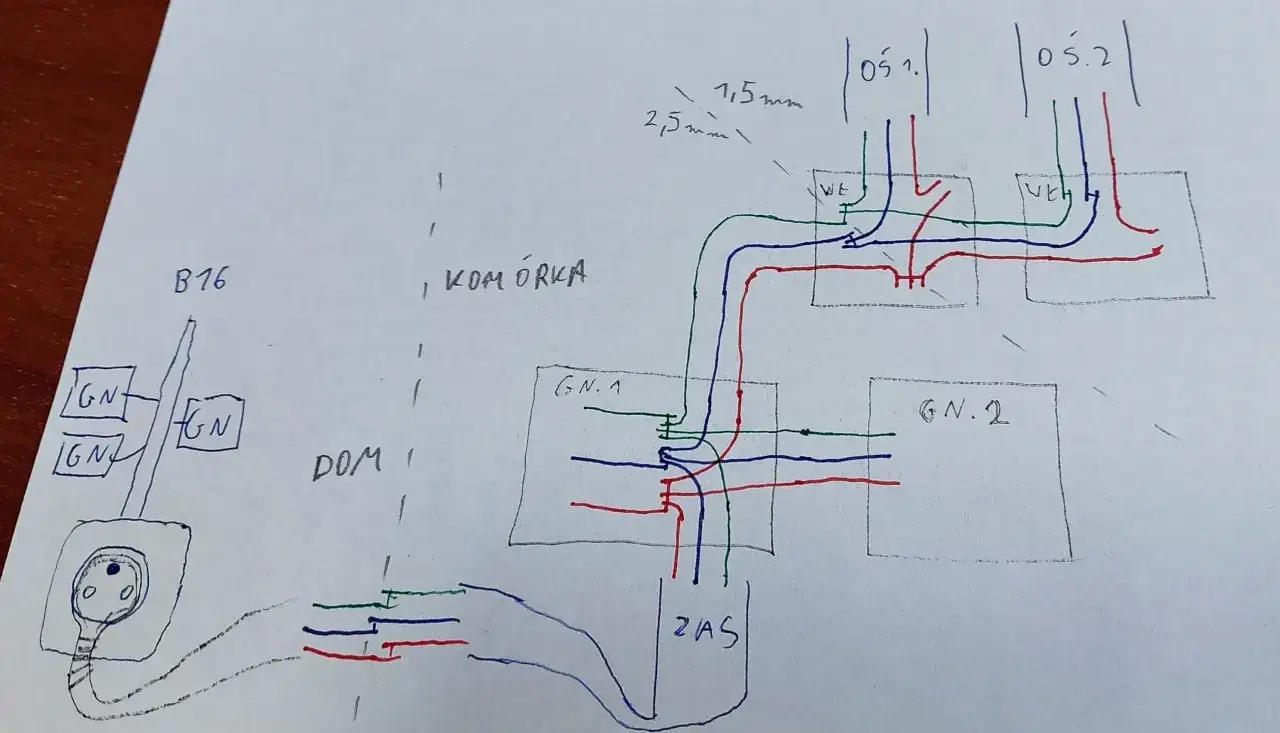 OŚ 1.
OŚ. 2
1,5mm
2,5mm
WŁ
WŁ
B16
KOMÓRKA
GN
GN
GN
GN. 1
GN. 2
DOM
ZAS